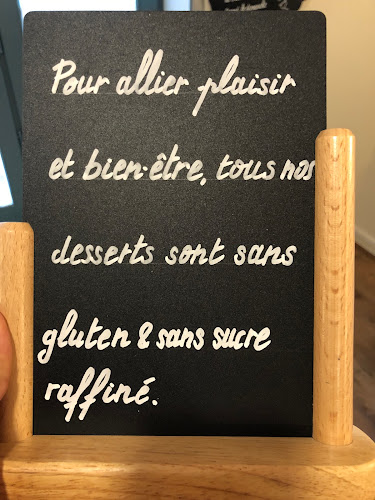 Pour allier plaisir
et bien-être, tous nos
desserts sont sans
gluten & sans sucre
raffiné.